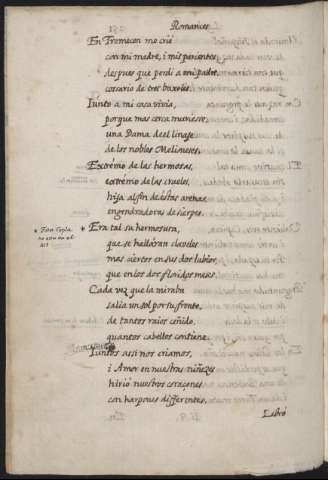 Romances
En Tremecen me crié
con mi madre, i mis parientes
despues que perdi a mi padre,
cosario de tres baxeles.
Iunto a mi casa vivia,
porque mas cerca muriesse,
una Dama de el linage
de los nobles Melioneses.
Extrémo de las hermosas,
extrémo de las crueles,
hija alfin de éstas arenas
engendradoras de sierpes.
+ Esta Copla
no esta en el
+ Era tal su hermosura,
que se hallaran claveles
mas ciertos en sus dos labios,
que en los dos floridos meses.
Cada vez que la miraba
salia un sol por su frente,
de tantos raios ceñido,
quantos cabellos contiene.
Iuntos assi nos criamos,
i Amor en nuestras niñezes
hirió nuestros coraçones
con harpones differentes.
Labró